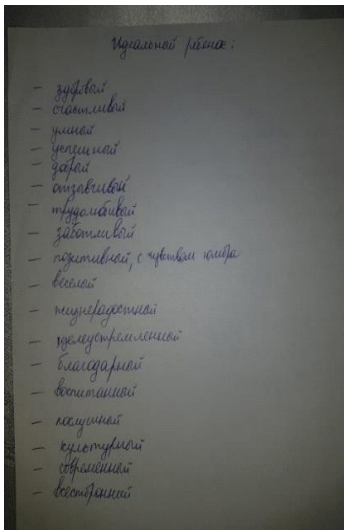 Идеальный ребенок:
- здоровый
- счастливый
- умный
- успешный
- добрый
- отзывчивый
- трудолюбивый
- заботливый
- позитивный, с чувством юмора
- веселый
- жизнерадостный
- целеустремленный
- благодарный
- воспитанный
- послушный
- культурный
- современный
- всесторонний